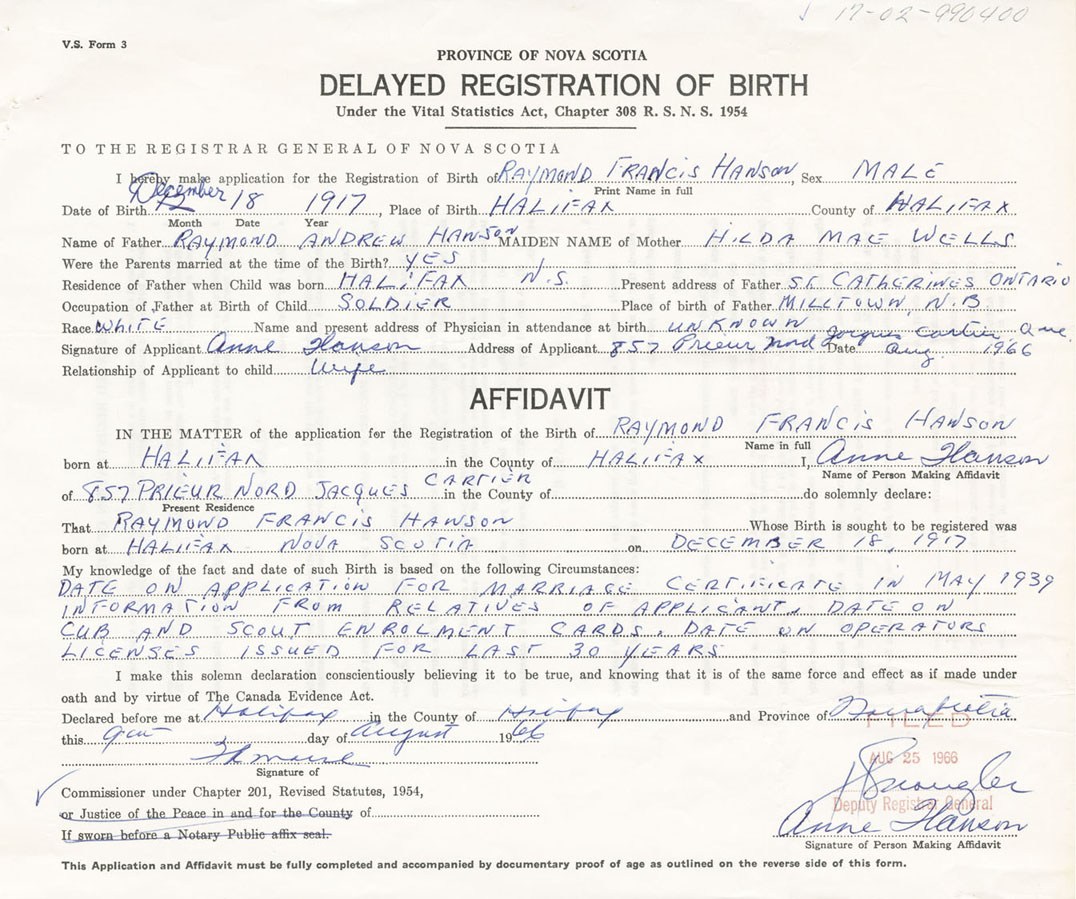 17-02-990400
V.S. Form 3
PROVINCE OF NOVA SCOTIA
DELAYED REGISTRATION OF BIRTH
Under the Vital Statistics Act, Chapter 308 R. S. N. S. 1954
TO THE REGISTRAR GENERAL OF NOVA SCOTIA
I hereby make application for the Registration of Birth of RAYMOND FRANCIS HANSON, Sex MALE
Print Name in full
Date of Birth December 18 1917, Place of Birth HALIFAX County of HALIFAX
Month Date Year
Name of Father RAYMOND ANDREW HANSON MAIDEN NAME of Mother HILDA MAE WELLS
Were the Parents married at the time of the Birth? YES
Residence of Father when Child was born HALIFAX N.S. Present address of Father ST. CATHERINES ONTARIO
Occupation of Father at Birth of Child SOLDIER Place of birth of Father MILLTOWN, N.B
Race WHITE Name and present address of Physician in attendance at birth UNKNOWN
Signature of Applicant Anne Hanson Address of Applicant 857 Prieur Nord Jacques Cartier Que. Date Aug. 1966
Relationship of Applicant to child Wife
AFFIDAVIT
IN THE MATTER of the application for the Registration of the Birth of RAYMOND FRANCIS HANSON
Name in full
born at HALIFAX in the County of HALIFAX I, Anne Hanson
Name of Person Making Affidavit
of 857 PRIEUR NORD JACQUES CARTIER in the County of do solemnly declare:
Present Residence
That RAYMOND FRANCIS HANSON Whose Birth is sought to be registered was
born at HALIFAX NOVA SCOTIA on DECEMBER 18, 1917
My knowledge of the fact and date of such Birth is based on the following Circumstances:
DATE ON APPLICATION FOR MARRIAGE CERTIFICATE IN MAY 1939
INFORMATION FROM RELATIVES OF APPLICANT, DATE ON
CUB AND SCOUT ENROLMENT CARDS. DATE ON OPERATORS
LICENSES ISSUED FOR LAST 30 YEARS
I make this solemn declaration conscientiously believing it to be true, and knowing that it is of the same force and effect as if made under
oath and by virtue of The Canada Evidence Act.
Declared before me at Halifax in the County of Halifax and Province of Nova Scotia
FILED
this day of August 1966
AUG 25 1966
Signature of
Commissioner under Chapter 201, Revised Statutes, 1954,
or Justice of the Peace in and for the County of
Deputy Registrar General
If sworn before a Notary Public affix seal.
Anne Hanson
Signature of Person Making Affidavit
This Application and Affidavit must be fully completed and accompanied by documentary proof of age as outlined on the reverse side of this form.